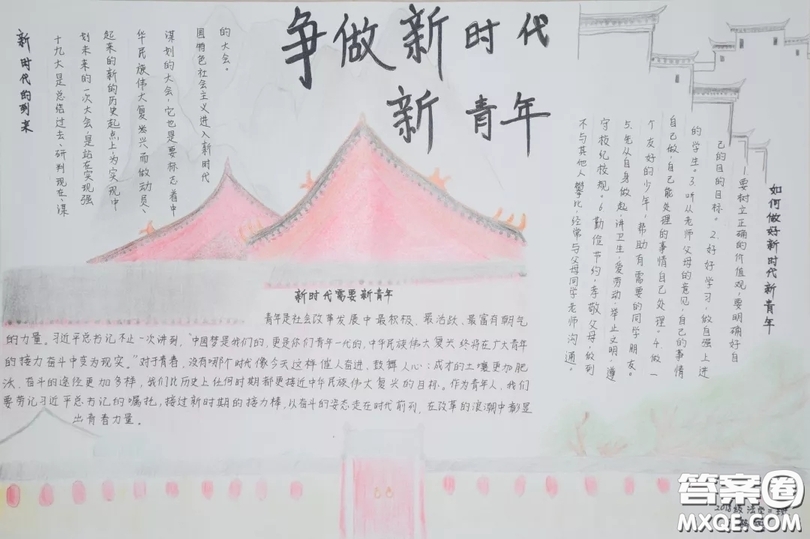 争做新时代
新青年
新时代的到来
十九大是总结过去、研判现在、谋
划未来的一次大会,是站在实现强
起来的新的历史起点上为实现中
华民族伟大复兴而做动员、
谋划的大会,它也是要标志着中
国特色社会主义进入新时代
的大会。
如何做好新时代新青年
一要树立正确的价值观,要明确好自
己的目的目标。2.好好学习,做自强上进
的学生。3.听从老师父母的意见,自己的事情
自己做,自己能处理的事情自己处理。4.做一
个友好的少年,帮助有需要的同学朋友。
5.先从自身做起,讲卫生,爱劳动,举止文明,遵
守校纪校规。6.勤俭节约,孝敬父母,做到
不与其他人攀比,经常与父母同学老师沟通。
新时代需要新青年
青年是社会改革发展中最积极、最活跃、最富有朝气
的力量。习近平总书记不止一次讲到,“中国梦是我们的,更是你们青年一代的,中华民族伟大复兴终将在广大青年
的接力奋斗中变为现实。”对于青春,没有哪个时代像今天这样催人奋进、鼓舞人心;成才的土壤更加肥
沃,奋斗的途径更加多样,我们比历史上任何时期都更接近中华民族伟大复兴的目标。作为青年人,我们
要劳记习近平总书记的嘱托,接过新时期的接力棒,以奋斗的姿态走在时代前列,在改革的浪潮中彰显
出青春力量。
答案圈
MXQE.COM